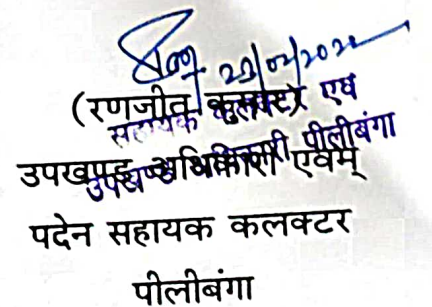 (रणजीत कुमार)
सहायक कलक्टर एवं
उपखण्ड अधिकारी पीलीबंगा
उपखण्ड अधिकारी एवम्
पदेन सहायक कलक्टर
पीलीबंगा